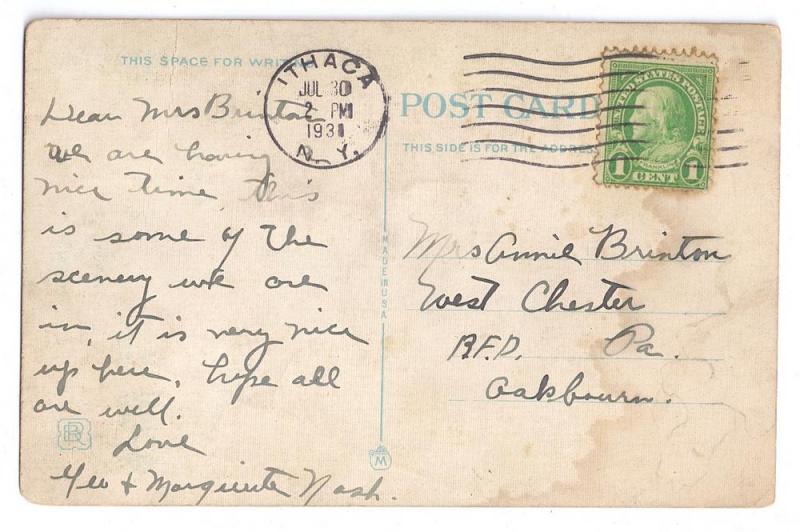 THIS SPACE FOR WRITING
ITHACA
JUL 30
2 PM
1931
N. Y.
POST CARD
THIS SIDE IS FOR THE ADDRESS
UNITED STATES POSTAGE
FRANKLIN
1 CENT 1
Dear Mrs Brinton
We are having
nice time, this
is some of the
scenery we are
in, it is very nice
up here, hope all
are well.
Love
Geo & Marguerite Nash.
MADE IN USA
Mrs Annie Brinton
West Chester
R.F.D. Pa.
Oakbourn.
M